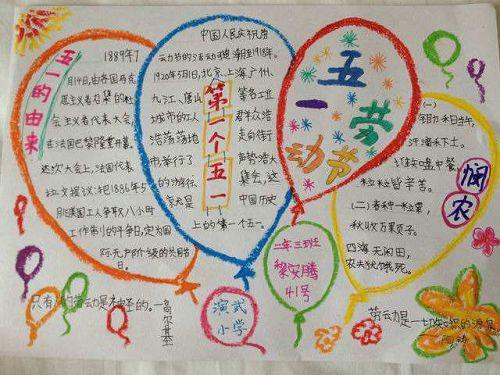 五一的由来
1889年7
月14日,由各国马克
思主义者召集的社
会主义者代表大会,
在法国巴黎隆重开幕。
这次大会上,法国代表
拉文提议:把1886年5
月1日美国工人争取八小时
工作制斗争日,定为国
际无产阶级的共同节
日。
中国人民庆祝劳
动节的活动可追溯至1918年。
1920年5月1日,北京、上海、广州、
九江、唐山等各工业
城市的工人群众浩
浩荡荡地走向街
市举行了声势浩大
的游行、集会,这
就是中国历史
上的第一个五一。
第一个五一
五一劳动节
(一)
锄禾日当午,
汗滴禾下土。
谁知盘中餐,
粒粒皆辛苦。
(二)春种一粒粟,
秋收万颗子。
四海无闲田,
农夫犹饿死。
悯农
二年三班
梁
腾
41号
演武
小学
只有
劳动是
的。—高尔基
劳动是一切知识的源泉